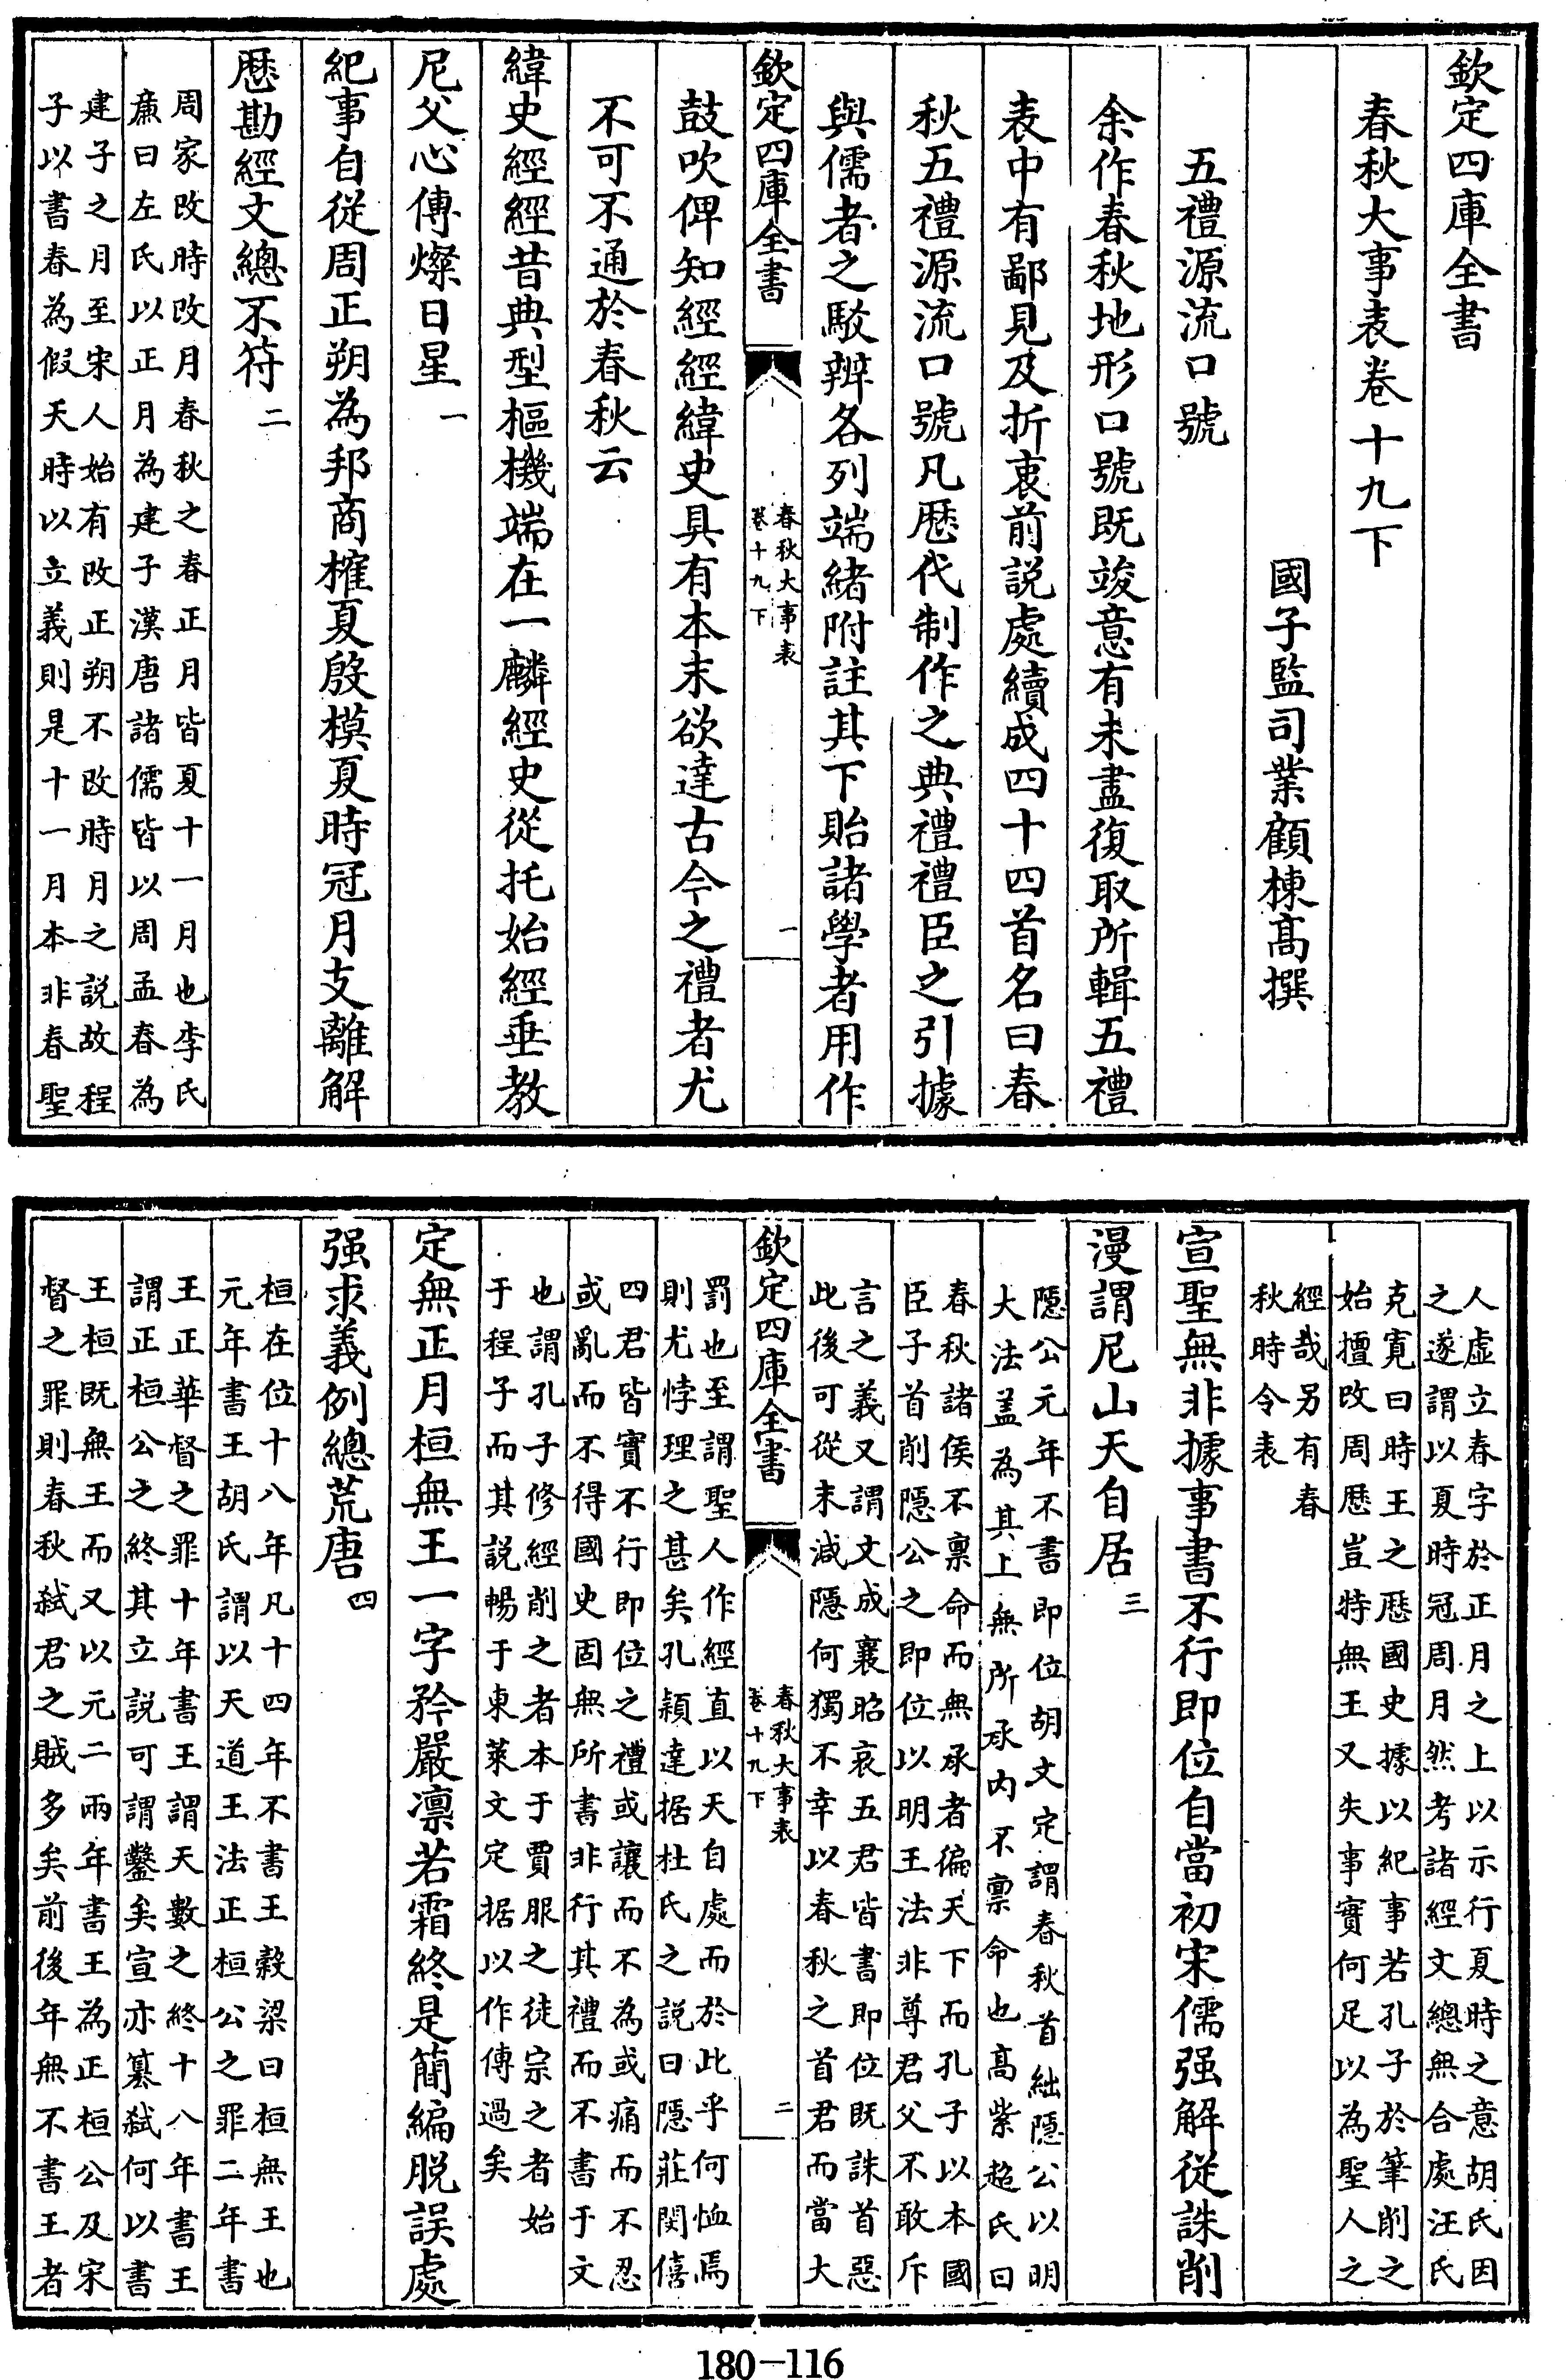 欽定四庫全書
春秋大事表卷十九下
國子監司業顧棟高撰
五禮源流口號
余作春秋地形口號既竣意有未盡復取所輯五禮
表中有鄙見及折衷前説處續成四十四首名曰春
秋五禮源流口號凡厯代制作之典禮禮臣之引據
與儒者之駁辨各列端緒附註其下貽諸學者用作
欽定四庫全書
春秋大事表
卷十九下
一
鼓吹俾知經經緯史具有本末欲達古今之禮者尤
不可不通於春秋云
緯史經經昔典型樞機端在一麟經史從托始經垂教
尼父心傳燦日星一
紀事自從周正朔為邦商榷夏殷模夏時冠月支離解
厯勘經文總不符二
周家改時改月春秋之春正月皆夏十一月也李氏
廉曰左氏以正月為建子漢唐諸儒皆以周孟春為
建子之月至宋人始有改正朔不改時月之説故程
子以書春為假天時以立義則是十一月本非春聖
人虛立春字於正月之上以示行夏時之意胡氏因
之遂謂以夏時冠周月然考諸經文總無合處汪氏
克寛曰時王之厯國史據以紀事若孔子於筆削之
始擅改周厯豈特無王又失事實何足以為聖人之
經哉另有春
秋時令表
宣聖無非據事書不行即位自當初宋儒强解從誅削
漫謂尼山天自居三
隱公元年不書即位胡文定謂春秋首絀隱公以明
大法盖為其上無所承内不禀命也髙紫超氏曰
春秋諸侯不禀命而無承者徧天下而孔子以本國
臣子首削隱公之即位以明王法非尊君父不敢斥
言之義又謂文成襄昭哀五君皆書即位既誅首惡
此後可從末減隱何獨不幸以春秋之首君而當大
欽定四庫全書
春秋大事表
卷十九下
二
罰也至謂聖人作經直以天自處而於此乎何恤焉
則尤悖理之甚矣孔穎達据杜氏之説曰隱莊閔僖
四君皆實不行即位之禮或讓而不為或痛而不忍
或亂而不得國史固無所書非行其禮而不書于文
也謂孔子修經削之者本于賈服之徒宗之者始
于程子而其説暢于東萊文定据以作傳過矣
定無正月桓無王一字矜嚴凛若霜終是簡編脱誤處
强求義例總荒唐四
桓在位十八年凡十四年不書王穀梁曰桓無王也
元年書王胡氏謂以天道王法正桓公之罪二年書
王正華督之罪十年書王謂天數之終十八年書王
謂正桓公之終其立説可謂鑿矣宣亦簒弑何以書
王桓既無王而又以元二兩年書王為正桓公及宋
督之罪則春秋弑君之賊多矣前後年無不書王者
180-116